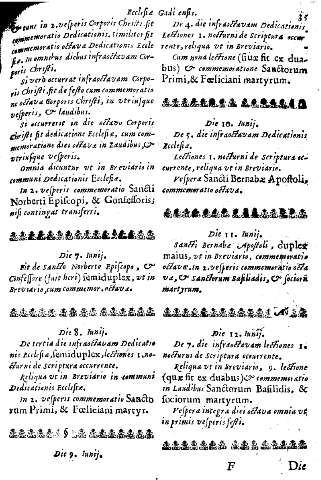 Ecclesiæ Gadi ensis. 35
tione in 2. vesperis Corporis Christi fit
commemoratio Dedicationis. similiter fit
commemoratio octavæ Dedicationis Ecclesiæ
in omnibus diebus infraoctavam Corporis
Christi.
Si verò occurrat infraoctavam Corporis
Christi, fit de festo cum commemoratione
octavæ Corporis Christi, in utrisque
vesperis, & laudibus.
Si occurrerit in die octavo Corporis
Christi, fit dedicationis Ecclesiæ, cum commemoratione
diei octavæ in Laudibus, &
utrisque vesperis.
Omnia dicuntur vt in Breviario in
communi Dedicationis Ecclesiæ.
In 2. vesperis commemoratio Sancti
Norberti Episcopi, & Confessoris;
nisi contingat transferri.
Die 7. Iunij.
Fit de Sancto Norberto Episcopo, &
Confessore (fuit heri) semiduplex, vt in
Breviario, cum commemor. octavæ.
Die 8. Iunij.
De tertia die infraoctavam Dedicationis
Ecclesiæ, semiduplex, lectiones 1. nocturni
de Scriptura occurrente.
Reliqua vt in Breviario in communi
Dedicationis Ecclesiæ.
In 2. vesperis commemoratio Sanctorum
Primi, & Fœliciani martyr.
Die 9. Iunij.
De 4. die infraoctavam Dedicationis,
Lectiones 1. nocturni de Scriptura occurrente,
reliqua vt in Breviario.
Cum una lectione (siuæ fit ex duabus)
& commemoratione Sanctorum
Primi, & Fœliciani martyrum.
Die 10. Iunij.
De 5. die infraoctavam Dedicationis
Ecclesiæ.
Lectiones 1. nocturni de Scriptura occurrente,
reliqua vt in Breviario.
Vesperæ Sancti Bernabæ Apostoli,
commemoratio octavæ.
Die 11. Iunij.
Sancti Bernabæ Apostoli, duplex
maius, vt in Breviario, commemoratio
octavæ. In 2. vesperis commemoratio octava,
& Sanctorum Basiliadis, & sociorum
martyrum.
Die 12. Iunij.
De 7. die infraoctavam lectiones 1.
nocturni de Scriptura occurrente.
Reliqua vt in Breviario, 9. lectione
(quæ fit ex duabus) & commemoratio
in Laudibus Sanctorum Basilidis, &
sociorum martyrum.
Vesperæ integræ diei octava omnia vt
in primis vesperis festi.
F Die